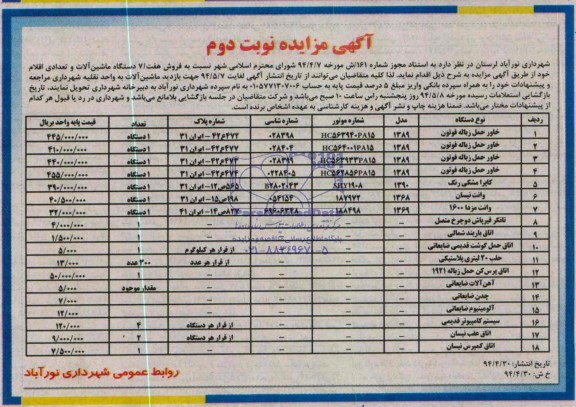 آگهی مزایده نوبت دوم
شهرداری نورآباد لرستان در نظر دارد به استناد مجوز شماره ۱۶۱/ش مورخه ۹۴/۴/۷ شورای محترم اسلامی شهر نسبت به فروش هفت/۷ دستگاه ماشین‌آلات و تعدادی اقلام
خود از طریق آگهی مزایده به شرح ذیل اقدام نماید. لذا کلیه متقاضیان می‌توانند از تاریخ انتشار آگهی لغایت ۹۴/۵/۷ جهت بازدید ماشین‌آلات به واحد نقلیه شهرداری مراجعه
و پیشنهادات خود را به همراه سپرده بانکی واریز مبلغ ۵ درصد قیمت پایه به حساب ۰۱۰۵۷۷۱۳۰۷۰۰۶ به نام سپرده شهرداری نورآباد به دبیرخانه شهرداری تحویل نمایند. تاریخ
بازگشایی استعلامات رسیده مورخه ۹۴/۵/۸ روز پنجشنبه راس ساعت ۱۰ صبح می‌باشد و شرکت متقاضیان در جلسه بازگشایی بلامانع می‌باشد و شهرداری در رد یا قبول هر کدام
از پیشنهادات مختار می‌باشد. ضمنا هزینه چاپ و نشر آگهی و هزینه کارشناسی به عهده اشخاص برنده است.
ردیف نوع دستگاه مدل شماره موتور شماره شاسی شماره پلاک تعداد قیمت پایه واحد بریال
۱ خاور حمل زباله فوتون ۱۳۸۹ HC563940P815 ۰۲۸۳۹۸ ۴۲ع۴۷۲-ایران ۳۱ ۱ دستگاه ۴۴۵/۰۰۰/۰۰۰
۲ خاور حمل زباله فوتون ۱۳۸۹ HC564001P815 ۰۲۸۴۰۴ ۴۲ع۴۷۴-ایران ۳۱ ۱ دستگاه ۴۱۰/۰۰۰/۰۰۰
۳ خاور حمل زباله فوتون ۱۳۸۹ HC563933P815 ۰۲۸۳۹۹ ۴۲ع۴۷۳-ایران ۳۱ ۱ دستگاه ۴۴۰/۰۰۰/۰۰۰
۴ خاور حمل زباله فوتون ۱۳۸۹ HC564856P815 ۰۲۲۸۴۰۵ ۴۲ع۴۷۴-ایران ۳۱ ۱ دستگاه ۴۵۵/۰۰۰/۰۰۰
۵ کاپرا مشکی رنگ ۱۳۹۰ ۱ دستگاه ۳۹۰/۰۰۰/۰۰۰
۶ وانت نیسان ۱۳۶۸ ۱۸۷۹۷۲ ۰۵۴۱۵۳ ۱ دستگاه ۴۰/۵۰۰/۰۰۰
۷ وانت مزدا ۱۶۰۰ ۱۳۶۹ ۱۸۸۴۹۸ ۱ دستگاه ۳۲/۰۰۰/۰۰۰
۸ تانکر قیرپاش دوچرخ متصل – – – – ۱ ۴/۰۰۰/۰۰۰
۹ اتاق باربند شمالی – – – – ۱ ۱/۵۰۰/۰۰۰
۱۰ اتاق حمل گوشت قدیمی ضایعاتی – – – از قرار هر کیلوگرم ۵/۰۰۰
۱۱ حلب ۲۰ لیتری پلاستیکی – – – از قرار هر عدد ۳۰۰ عدد ۱۳/۰۰۰
۱۲ اتاق پرس‌کن حمل زباله ۱۹۲۱ – – – – ۱ ۵۰/۰۰۰/۰۰۰
۱۳ آهن آلات ضایعاتی – – – – مقدار موجود ۵/۰۰۰
۱۴ چدن ضایعاتی – – – – ۷/۰۰۰
۱۵ آلومینیوم ضایعاتی – – – – ۱۲/۰۰۰
۱۶ سیستم کامپیوتر قدیمی – – – از قرار هر دستگاه ۴ ۱۲۰/۰۰۰
۱۷ اتاق عقب نیسان – – – از قرار هر دستگاه ۲ ۹/۰۰۰/۰۰۰
۱۸ اتاق کمپرس نیسان – – – – ۱ ۷/۵۰۰/۰۰۰
تاریخ انتشار: ۹۴/۴/۳۰
خ ش: ۹۴/۴/۳۰
روابط عمومی شهرداری نورآباد